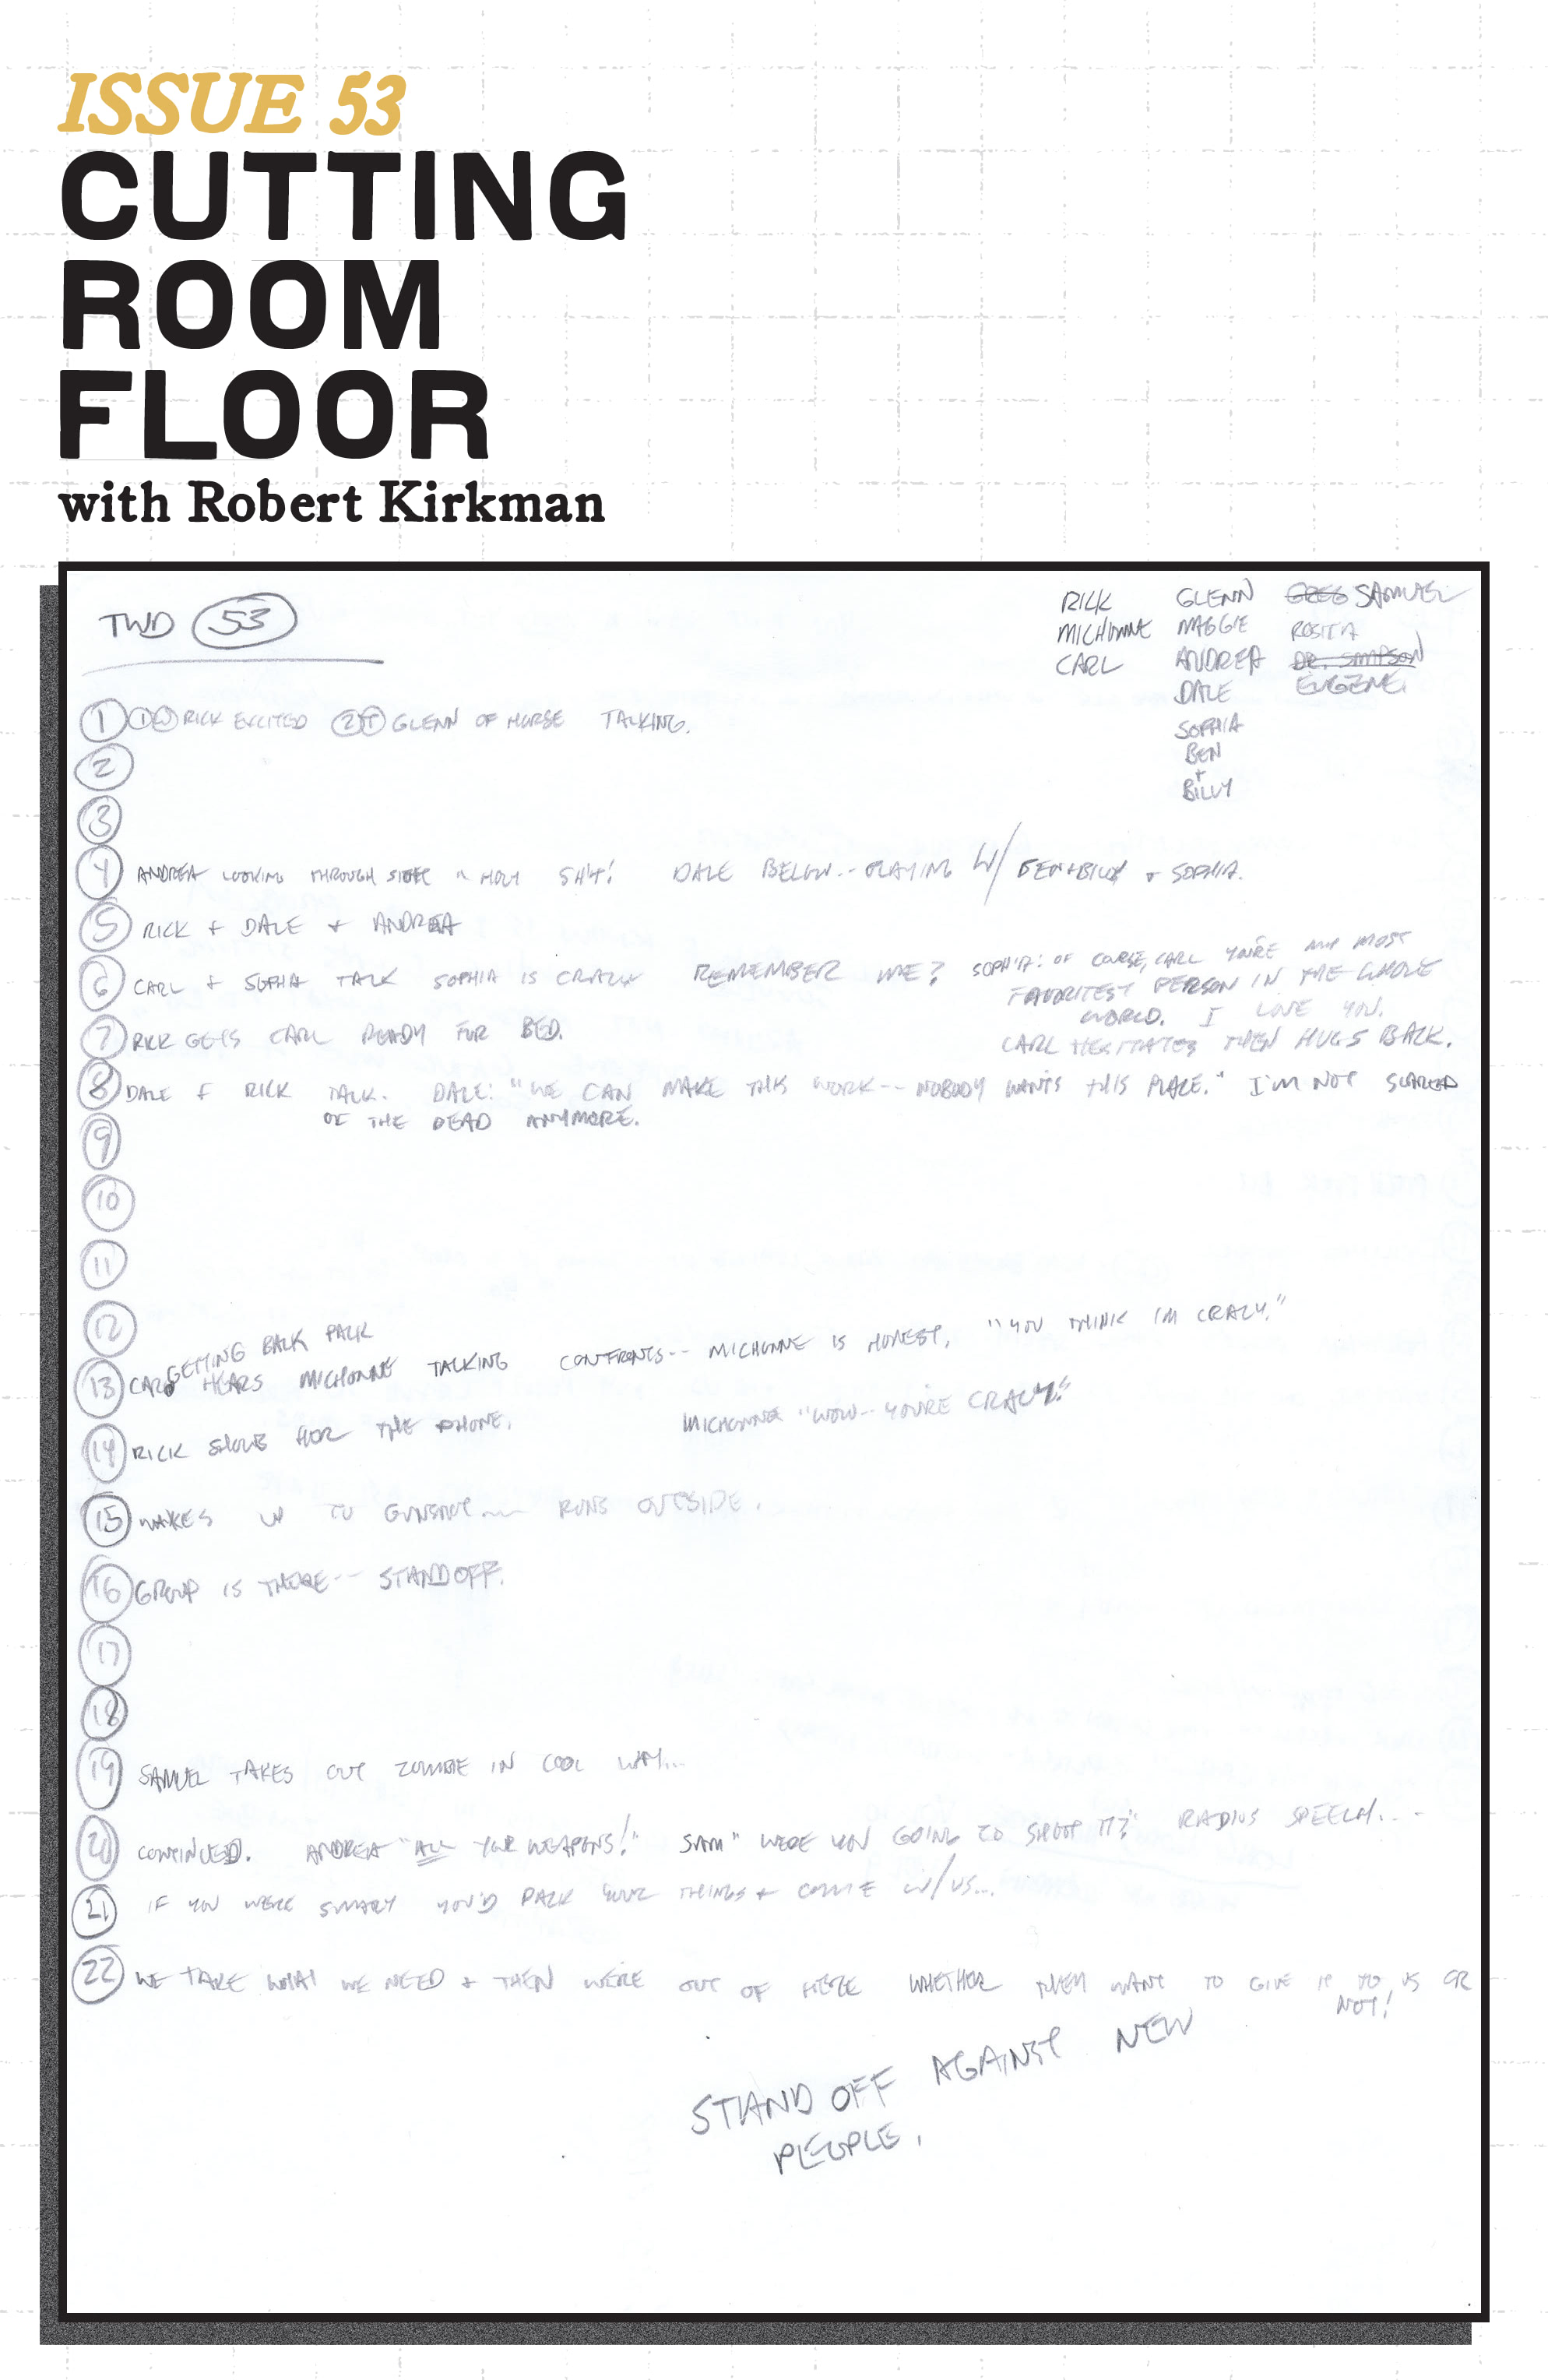 ISSUE 53
CUTTING
ROOM
FLOOR
with Robert Kirkman
TWD 53
RICK GLENN GREG SAMUEL
MICHONNE MAGGIE ROSITA
CARL ANDREA DR. SIMPSON
DALE EUGENE
SOPHIA
BEN
+
BILLY
1 1 RICK EXCITED 2 GLENN OF HORSE TALKING.
2
3
4 ANDREA LOOKING THROUGH "HOLY SH*T! DALE BELOW-- PLAYING W/ BEN+BILLY + SOPHIA.
5 RICK + DALE + ANDREA
6 CARL + SOPHIA TALK SOPHIA IS CRAZY REMEMBER ME? SOPHIA: OF COURSE, CARL YOU'RE MY MOST
FAVORITEST PERSON IN THE WHOLE
WORLD. I LOVE YOU.
7 RICK GETS CARL READY FOR BED.
CARL HESITATES THEN HUGS BACK.
8 DALE + RICK TALK. DALE: "WE CAN MAKE THIS WORK-- NOBODY WANTS THIS PLACE." I'M NOT SCARED
OF THE DEAD ANYMORE.
9
10
11
12
GETTING BACK PACK
13 CARL HEARS MICHONNE TALKING CONFRONTS-- MICHONNE IS HONEST, "YOU THINK I'M CRAZY."
14 RICK SHOWS HER THE PHONE. MICHONNE "WOW-- YOU'RE CRAZY."
15 WAKES UP TO GUNSHOT-- RUNS OUTSIDE.
16 GROUP IS THERE-- STANDOFF.
17
18
19 SAMUEL TAKES OUT ZOMBIE IN COOL WAY...
20 CONTINUED. ANDREA "ALL YOUR WEAPONS!" SAM "WERE YOU GOING TO SHOOT IT?" RADIUS SPEECH...
21 IF YOU WERE SMART YOU'D PACK YOUR THINGS + COME W/US...
22 WE TAKE WHAT WE NEED + THEN WE'RE OUT OF HERE WHETHER THEY WANT TO GIVE IT TO US OR
NOT!
STAND OFF AGAINST NEW
PEOPLE.